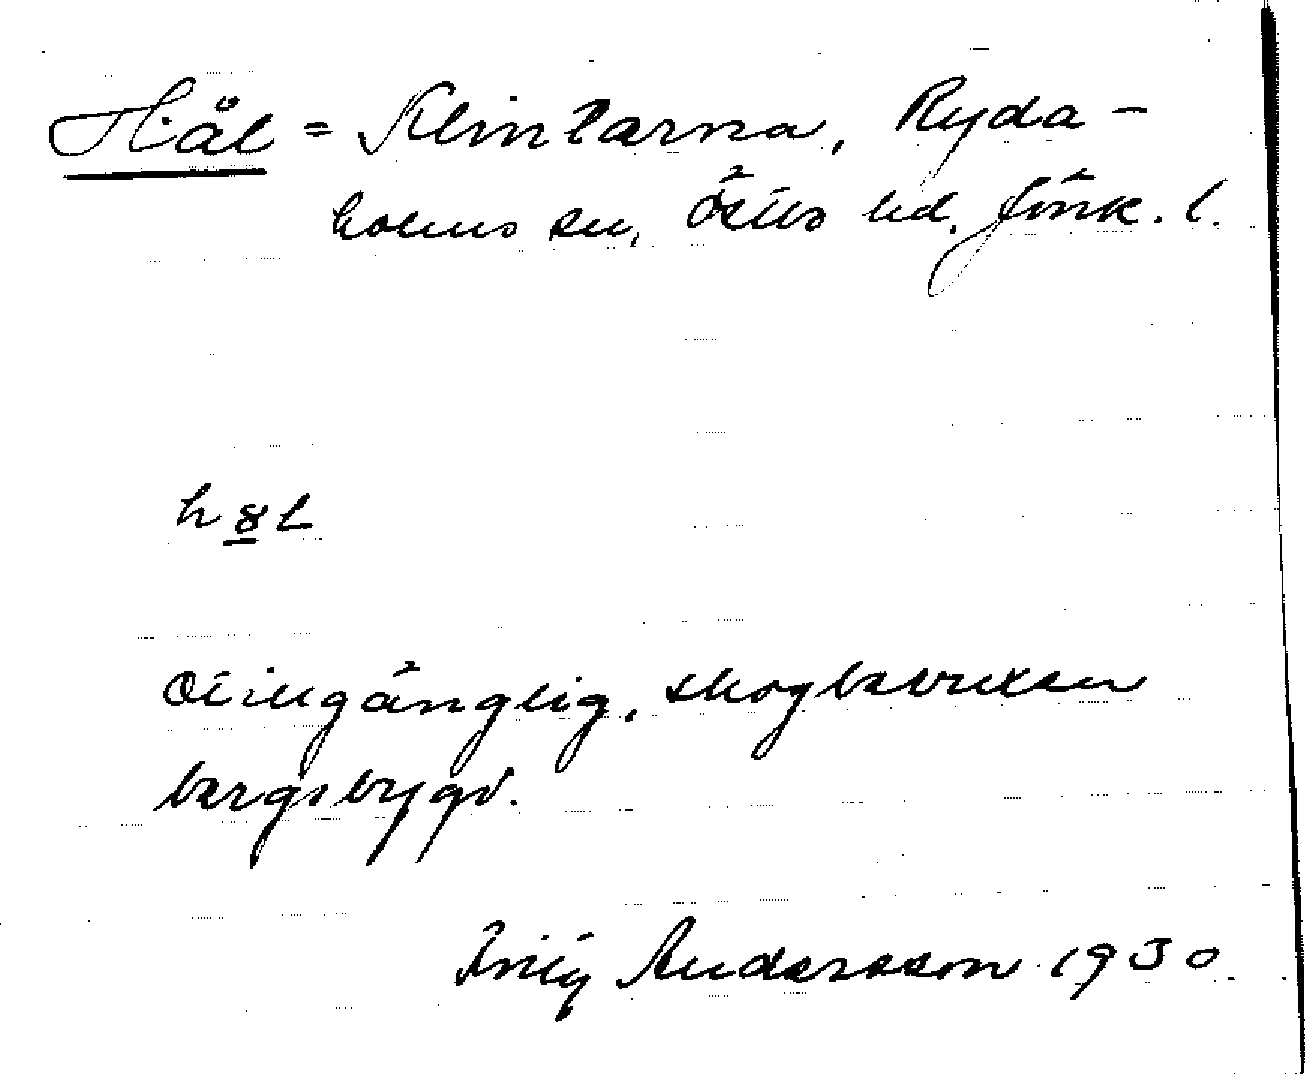 Hål = Klintarna, Ryda-
holms sn, Östbo hd. Jönk. l.
h8l
Otillgänglig, skogbevuxen
bergsbygd.
Andersson 1930.